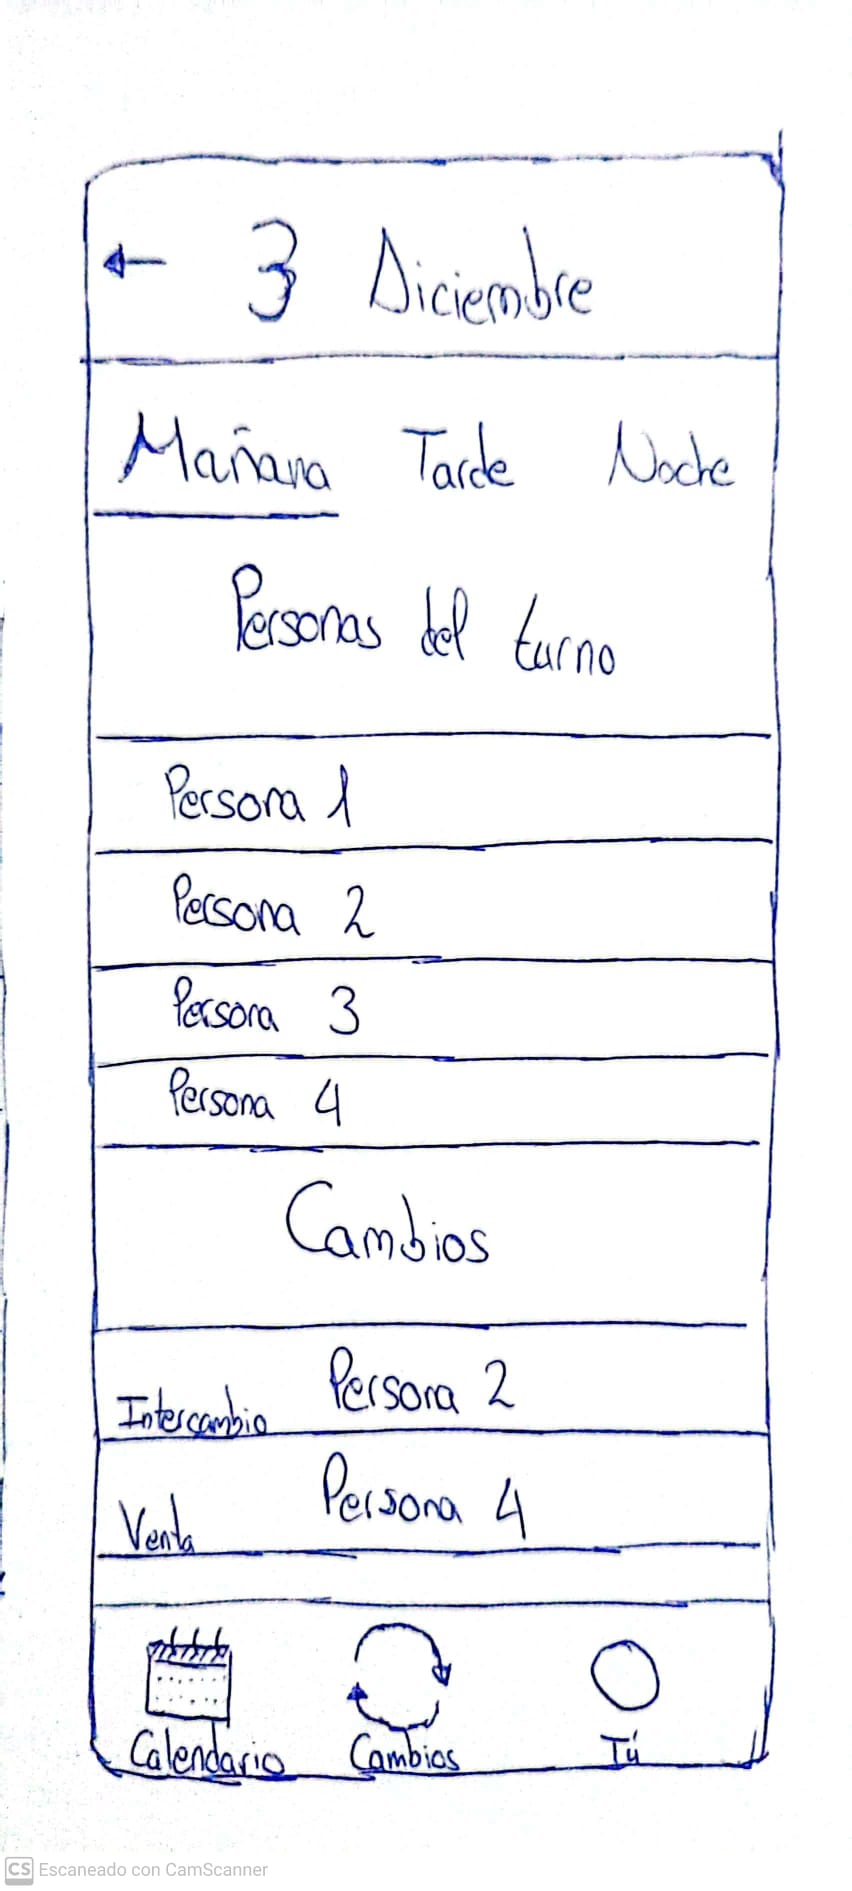 ← 3 Diciembre
Mañana Tarde Noche
Personas del turno
Persona 1
Persona 2
Persona 3
Persona 4
Cambios
Intercambio Persona 2
Venta Persona 4
Calendario Cambios Tú
CS Escaneado con CamScanner